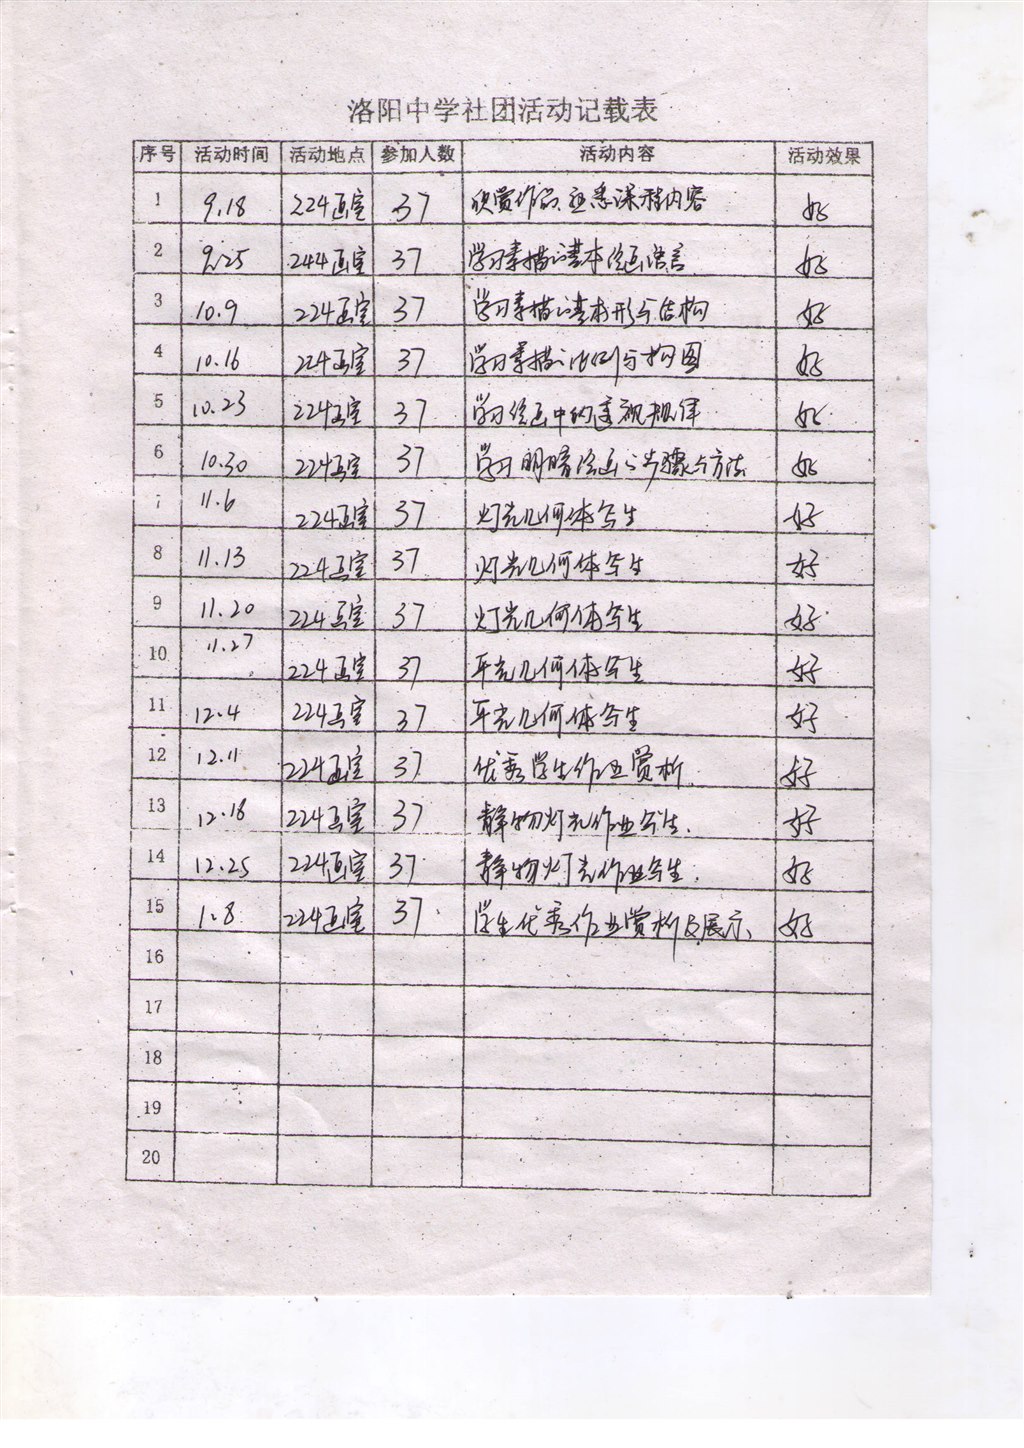 洛阳中学社团活动记载表
序号 活动时间 活动地点 参加人数 活动内容 活动效果
1 9.18 224画室 37 欣赏作品,熟悉课程内容 好
2 9.25 244画室 37 学习素描的基本绘画语言 好
3 10.9 224画室 37 学习素描的基本形与结构 好
4 10.16 224画室 37 学习素描的比例与构图 好
5 10.23 224画室 37 学习绘画中的透视规律 好
6 10.30 224画室 37 学习明暗绘画的步骤与方法 好
7 11.6 224画室 37 灯光几何体写生 好
8 11.13 224画室 37 灯光几何体写生 好
9 11.20 224画室 37 灯光几何体写生 好
10 11.27 224画室 37 平光几何体写生 好
11 12.4 224画室 37 平光几何体写生 好
12 12.11 224画室 37 优秀学生作业赏析 好
13 12.18 224画室 37 静物灯光作业写生. 好
14 12.25 224画室 37 静物灯光作业写生. 好
15 1.8 224画室 37 学生优秀作业赏析及展示、 好
16
17
18
19
20